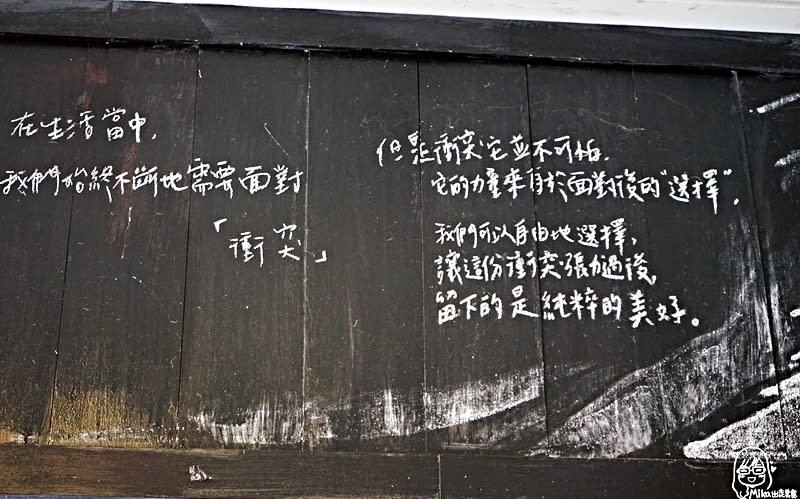 在生活當中,
我們始終不斷地需要面對
「衝突」
但是衝突它並不可怕.
它的力量來自於面對後的"選擇".
我們可以自由地選擇,
讓這份衝突張力過後,
留下的是純粹的美好。
Mika出走美食